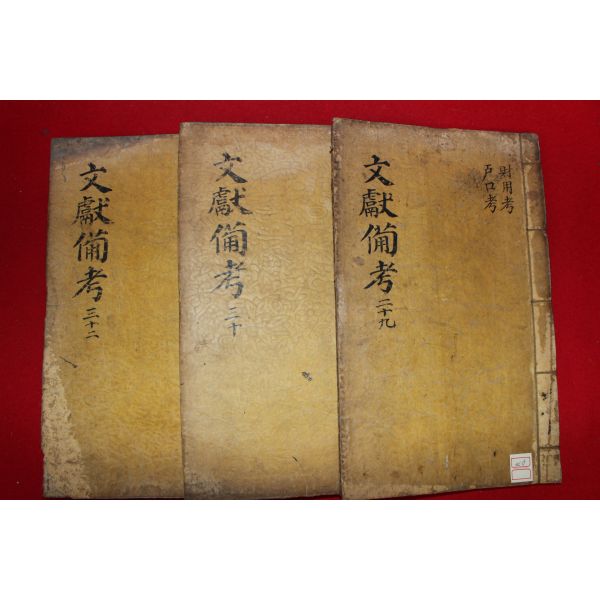 財用考
戶口考
文獻備考
二十九
文獻備考
三十
文獻備考
三十二